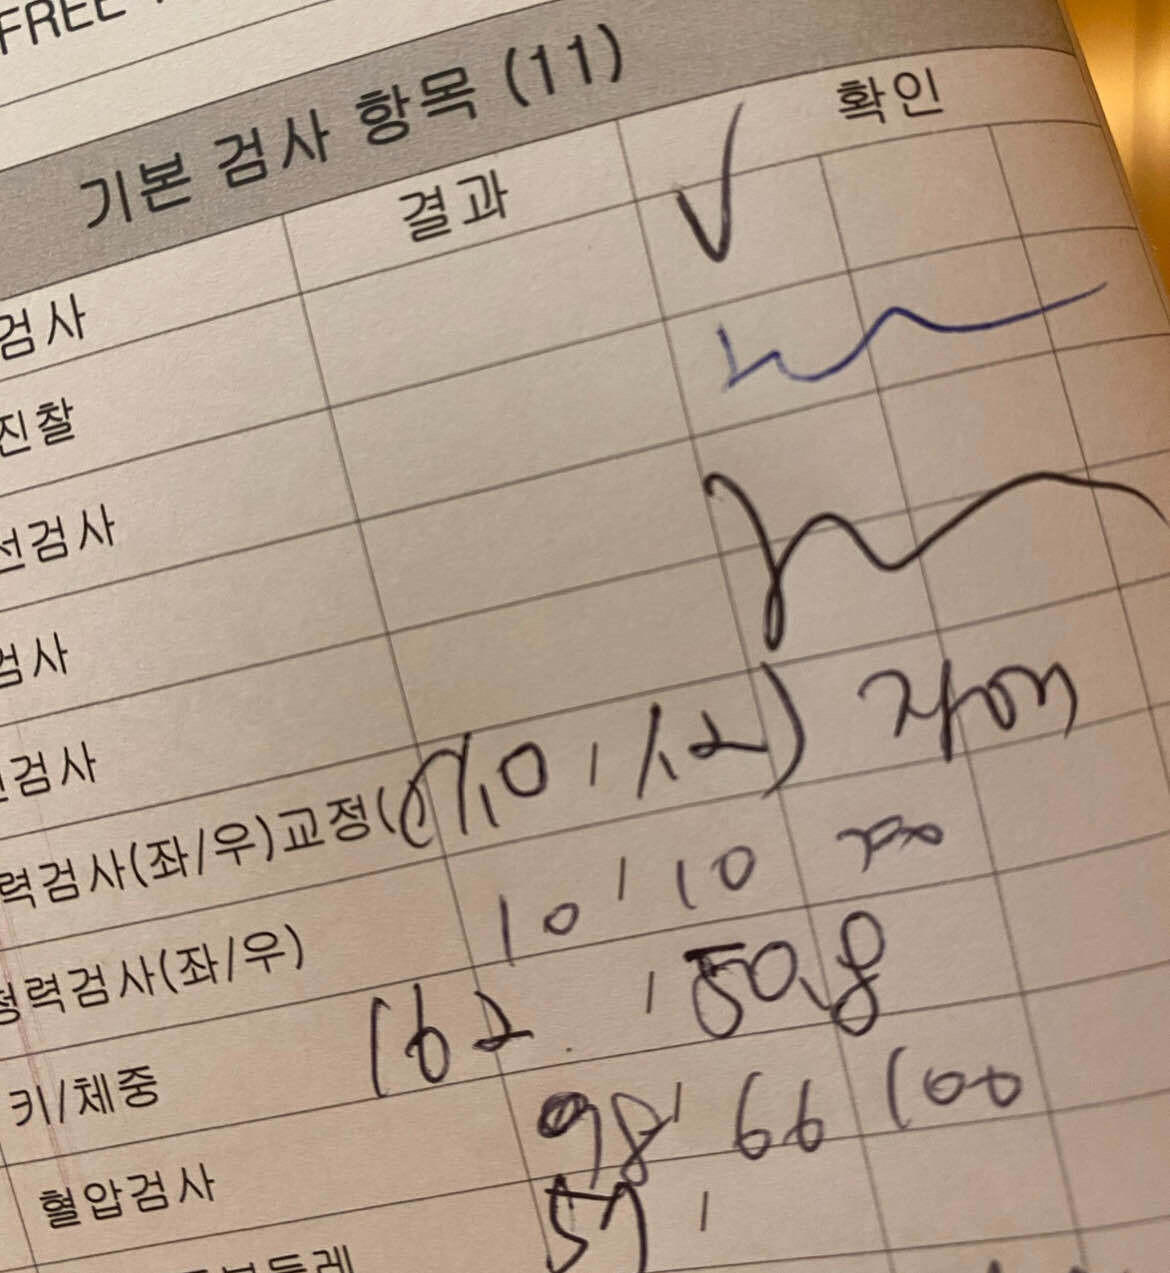 FREE
기본 검사 항목 (11)
결과 확인
검사 √
진찰
선검사
검사
검사
력검사(좌/우)교정( 1.0 / 1.2)
청력검사(좌/우) 10 / 10
키/체중 162 / 50.8
혈압검사 98 / 66 100
둘레 57 /